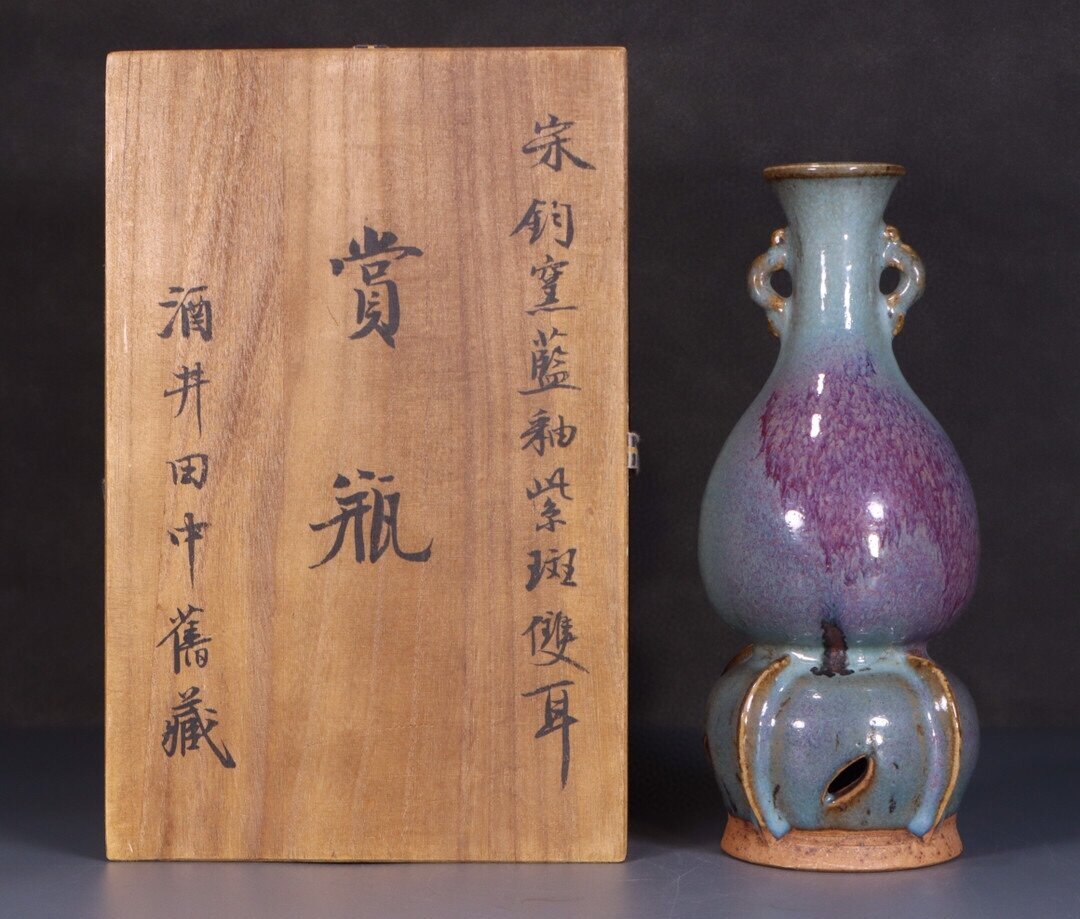 宋鈞窯藍釉紫斑雙耳
賞瓶
酒井田中舊藏